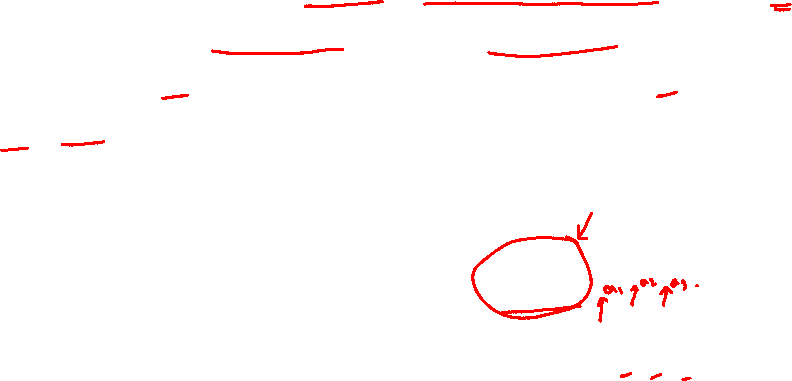 a₁ a₂ a₃ .